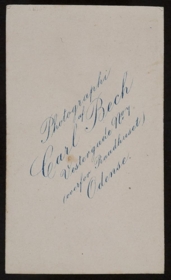 Photographi
af
Carl Bech
Vestergade No 7,
(overfor Raadhuset)
Odense.